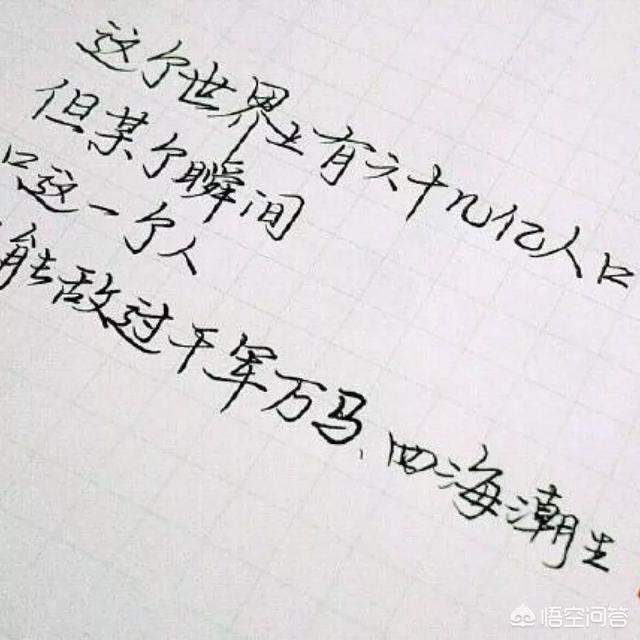 这个世界上有六十九亿人口
但某个瞬间
这一个人
能敌过千军万马、四海潮生
悟空问答